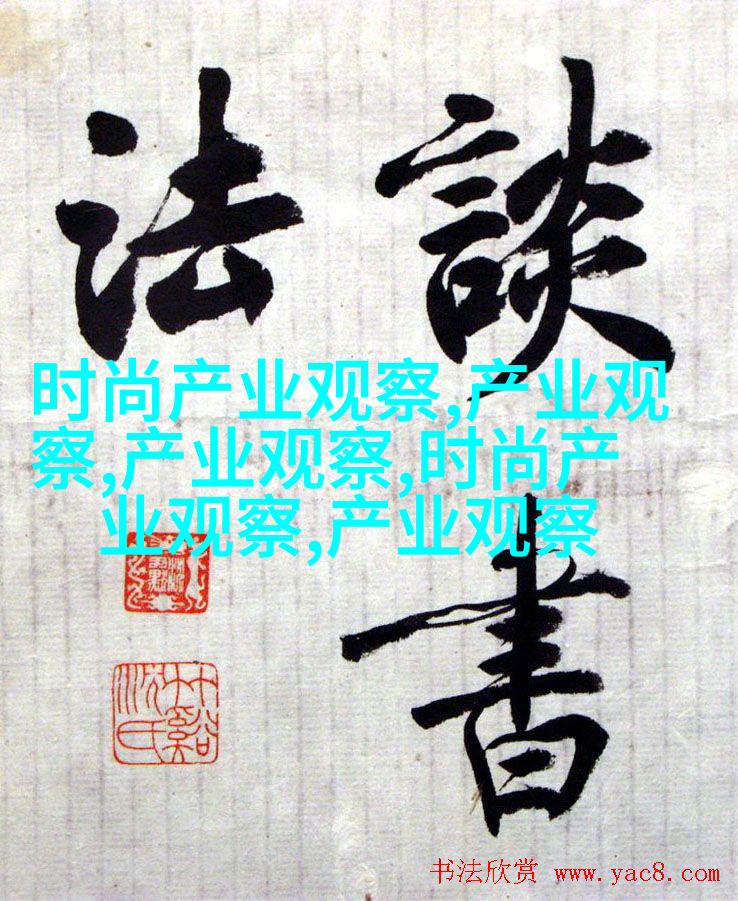 談書
法
时尚产业观察,产业观
察,产业观察,时尚产
业观察,产业观察
竹谿沈氏
书法欣赏 www.yac8.com